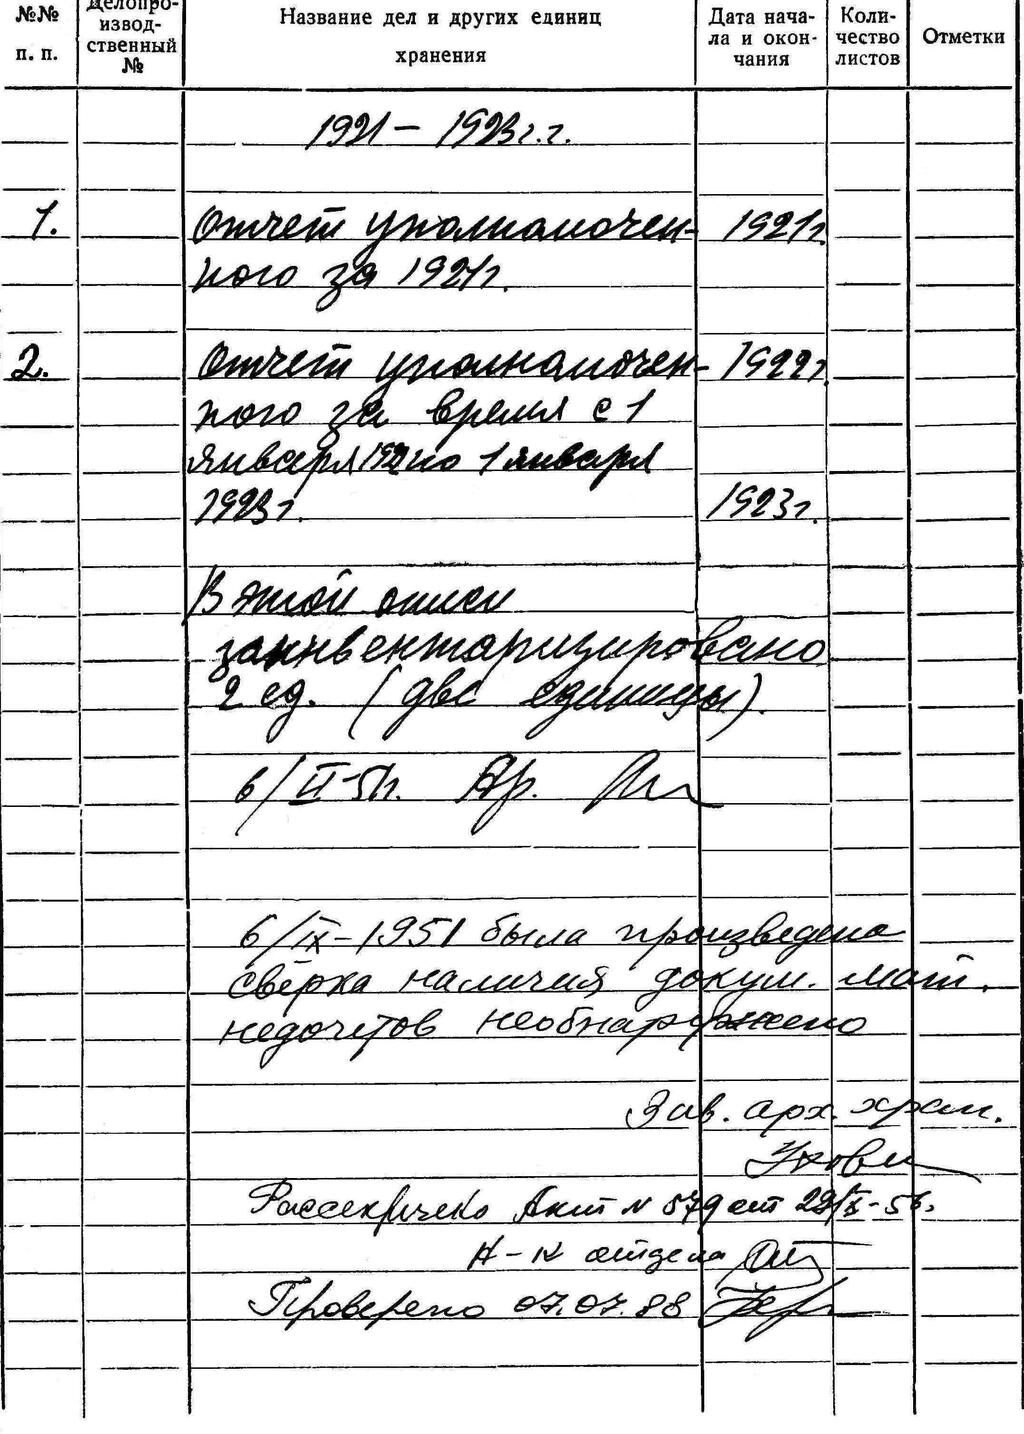 №№ п. п.
Делопро-
извод-
ственный
№
Название дел и других единиц
хранения
Дата нача-
ла и окон-
чания
Коли-
чество
листов
Отметки
1921 – 1923 г.г.
1. Отчет уполномочен- 1921 г.
ного за 1921 г.
2. Отчет уполномочен- 1922 г.
ного за время с 1
января 1922 по 1 января
1923 г. 1923 г.
В этой описи
заинвентаризировано
2 ед. (две единицы).
6/II-51 г. Ар.
6/IX-1951 была произведена
сверка наличия докум. мат.
недочетов необнаружено
Зав. арх. хран.
Рассекречено Акт № 579 от
Н-к отдела
Проверено 07.07.88